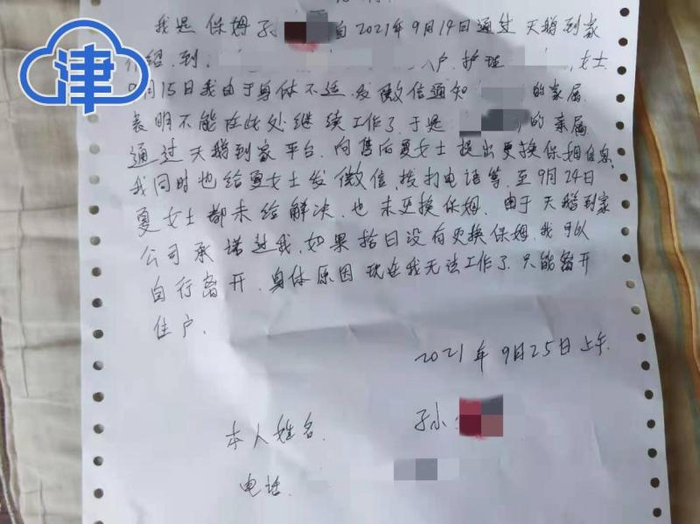 津
我是保姆孙 自2021年9月14日通过天鹅到家
介绍.到 入户.护理 女士
9月15日我由于身体不适.发微信通知 的家属
表明不能在此处继续工作了.于是 的亲属
通过天鹅到家平台.向售后夏女士提出更换保姆信息.
我同时也给夏女士发微信.拨打电话等.至9月24日
夏女士都未给解决.也未更换保姆.由于天鹅到家
公司承诺过我.如果拾日没有更换保姆.我可以
自行离开.身体原因现在我无法工作了.只能离开
住户.
2021年9月25日上午.
本人姓名. 孙小
电话.